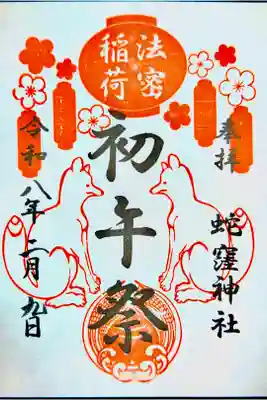 奉拝
法密
稲荷
初午祭
蛇窪神社
令和八年二月九日